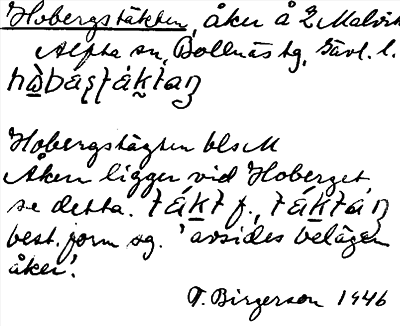 Hobergstäkten, åker å 2 Malvik
Alfta sn, Bollnäs tg, Gävl. l.
Hobergstägten bls M
Åkern ligger vid Hoberget
se detta. f.,
best. form sg. 'avsides belägen
åker'.
T. Birgerson 1946